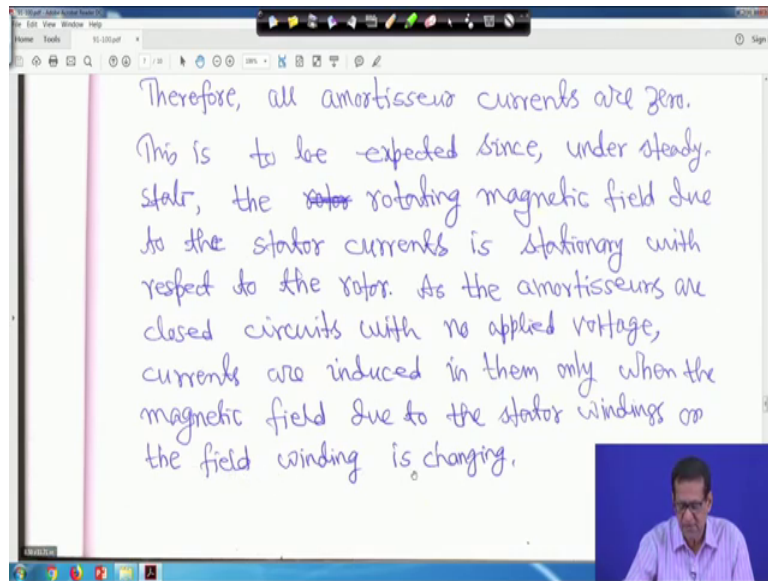 91-100.pdf - Adobe Acrobat Reader DC
File Edit View Window Help
Home Tools 91-100.pdf × Sign
7 / 10
Therefore, all amortisseur currents are zero.
This is to be expected since, under steady-
state, the rotor rotating magnetic field due
to the stator currents is stationary with
respect to the rotor. As the amortisseurs are
closed circuits with no applied voltage,
currents are induced in them only when the
magnetic field due to the stator windings or
the field winding is changing.